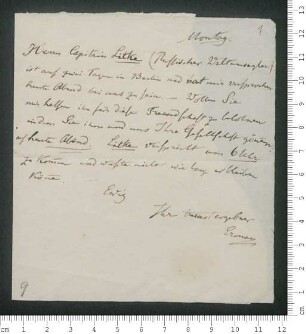 1
Montag.
Herrn Capitain Lütke (Russischer Weltumsegler)
ist auf zwei Tage in Berlin und hat mir versprochen
heute Abend bei uns zu sein. – Wollen Sie
mir helfen ihn für diese Freundschaft zu belohnen
indem Sie ihm und uns Ihre Gesellschaft gönnen
auf heute Abend. Lütke verspricht um 6 Uhr
zu kommen und wußte nicht wie lang er bleiben
könne
Ewig
Ihr treu ergebner
Erman
9